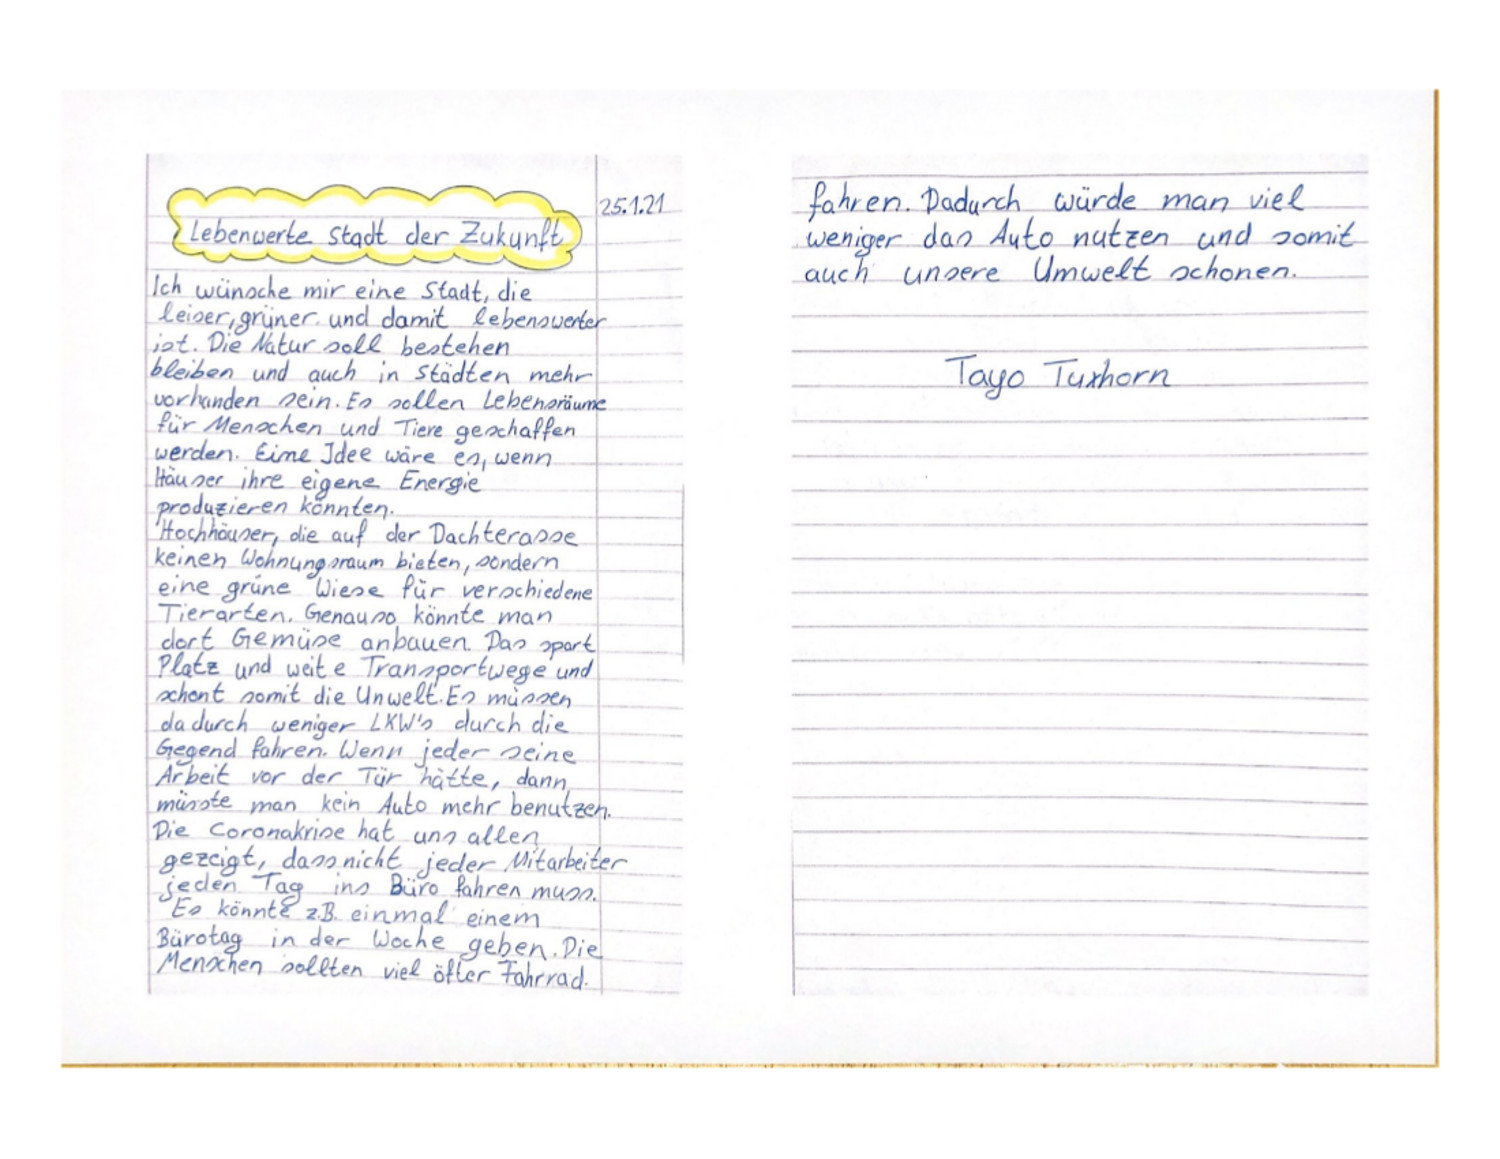 25.1.21
Lebenwerte Stadt der Zukunft
Ich wünsche mir eine Stadt, die
leiser, grüner und damit lebenswerter
ist. Die Natur soll bestehen
bleiben und auch in Städten mehr
vorhanden sein. Es sollen Lebensräume
für Menschen und Tiere geschaffen
werden. Eine Idee wäre es, wenn
Häuser ihre eigene Energie
produzieren könnten.
Hochhäuser, die auf der Dachterasse
keinen Wohnungsraum bieten, sondern
eine grüne Wiese für verschiedene
Tierarten. Genauso könnte man
dort Gemüse anbauen. Das spart
Platz und weite Transportwege und
schont somit die Umwelt. Es müssen
dadurch weniger LKW's durch die
Gegend fahren. Wenn jeder seine
Arbeit vor der Tür hätte, dann
müsste man kein Auto mehr benutzen.
Die Coronakrise hat uns allen
gezeigt, dass nicht jeder Mitarbeiter
jeden Tag ins Büro fahren muss.
Es könnte z.B. einmal einem
Bürotag in der Woche geben. Die
Menschen sollten viel öfter Fahrrad.
fahren. Dadurch würde man viel
weniger das Auto nutzen und somit
auch unsere Umwelt schonen.
Tayo Tuxhorn